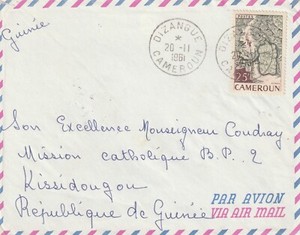 Guinée
DIZANGUE
20-11
1961
CAMEROUN
POSTES
25F
CAMEROUN
Son Excellence Monseigneur Coudray
Mission catholique B.P. 2
Kissidougou
République de Guinée
PAR AVION
VIA AIR MAIL